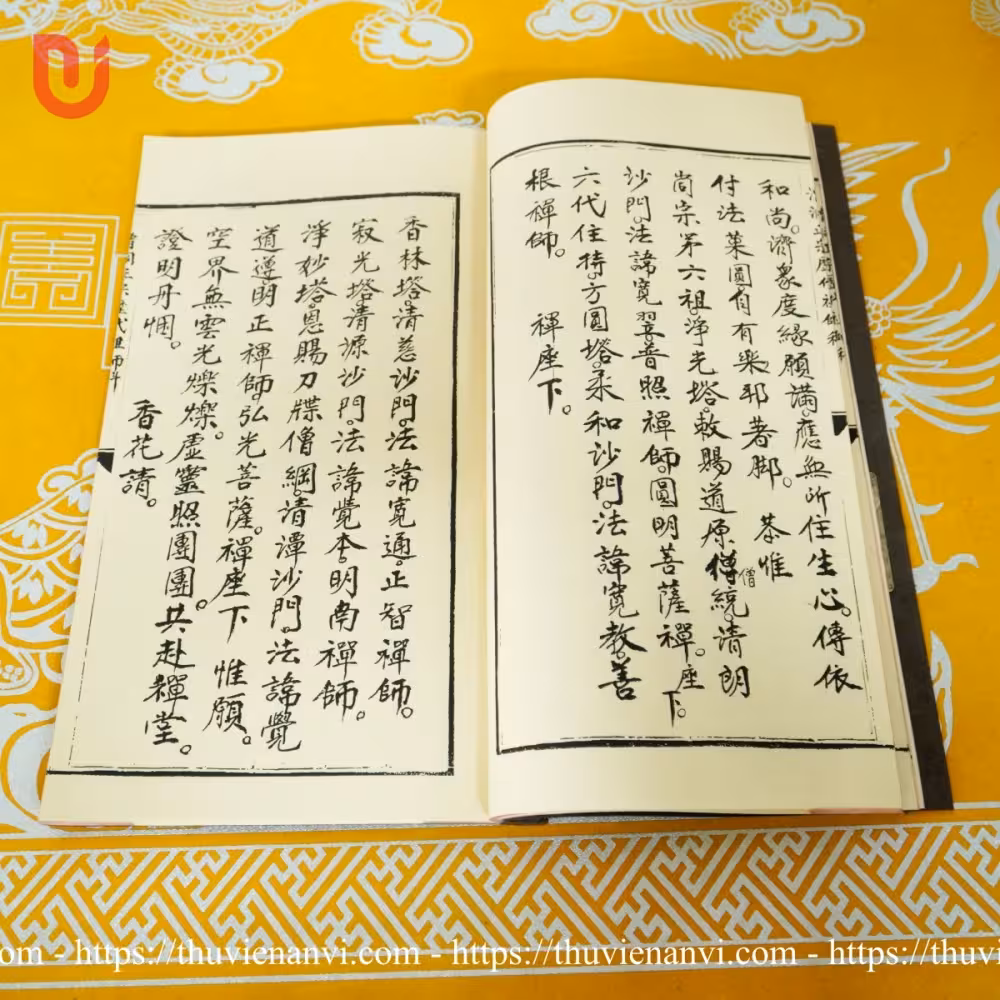 和尚。濟衆度緣願滿。應無所住生心。傳依
付法菓圓自有樂邦著脚。 恭惟
尚宗第六祖。淨光塔。敕賜道原傳統。清朗
僧
沙門。法諱寬翌。普照禪師。圓明菩薩禪。座下。
六代住持。方圓塔。柔和沙門。法諱寬教。善
根禪師。 禪座下。
香林塔。清慈沙門。法諱寬通。正智禪師。
寂光塔。清源沙門。法諱覺本。明南禪師。
淨妙塔。恩賜刀牒僧綱。清潭沙門。法諱覺
道遵明正禪師。弘光菩薩。禪座下 惟願。
空界無雲光爍爍。虛靈照團團。共赴禪堂。
證明丹悃。 香花請。
.com - https://thuvienanvi.com - https://thuvi